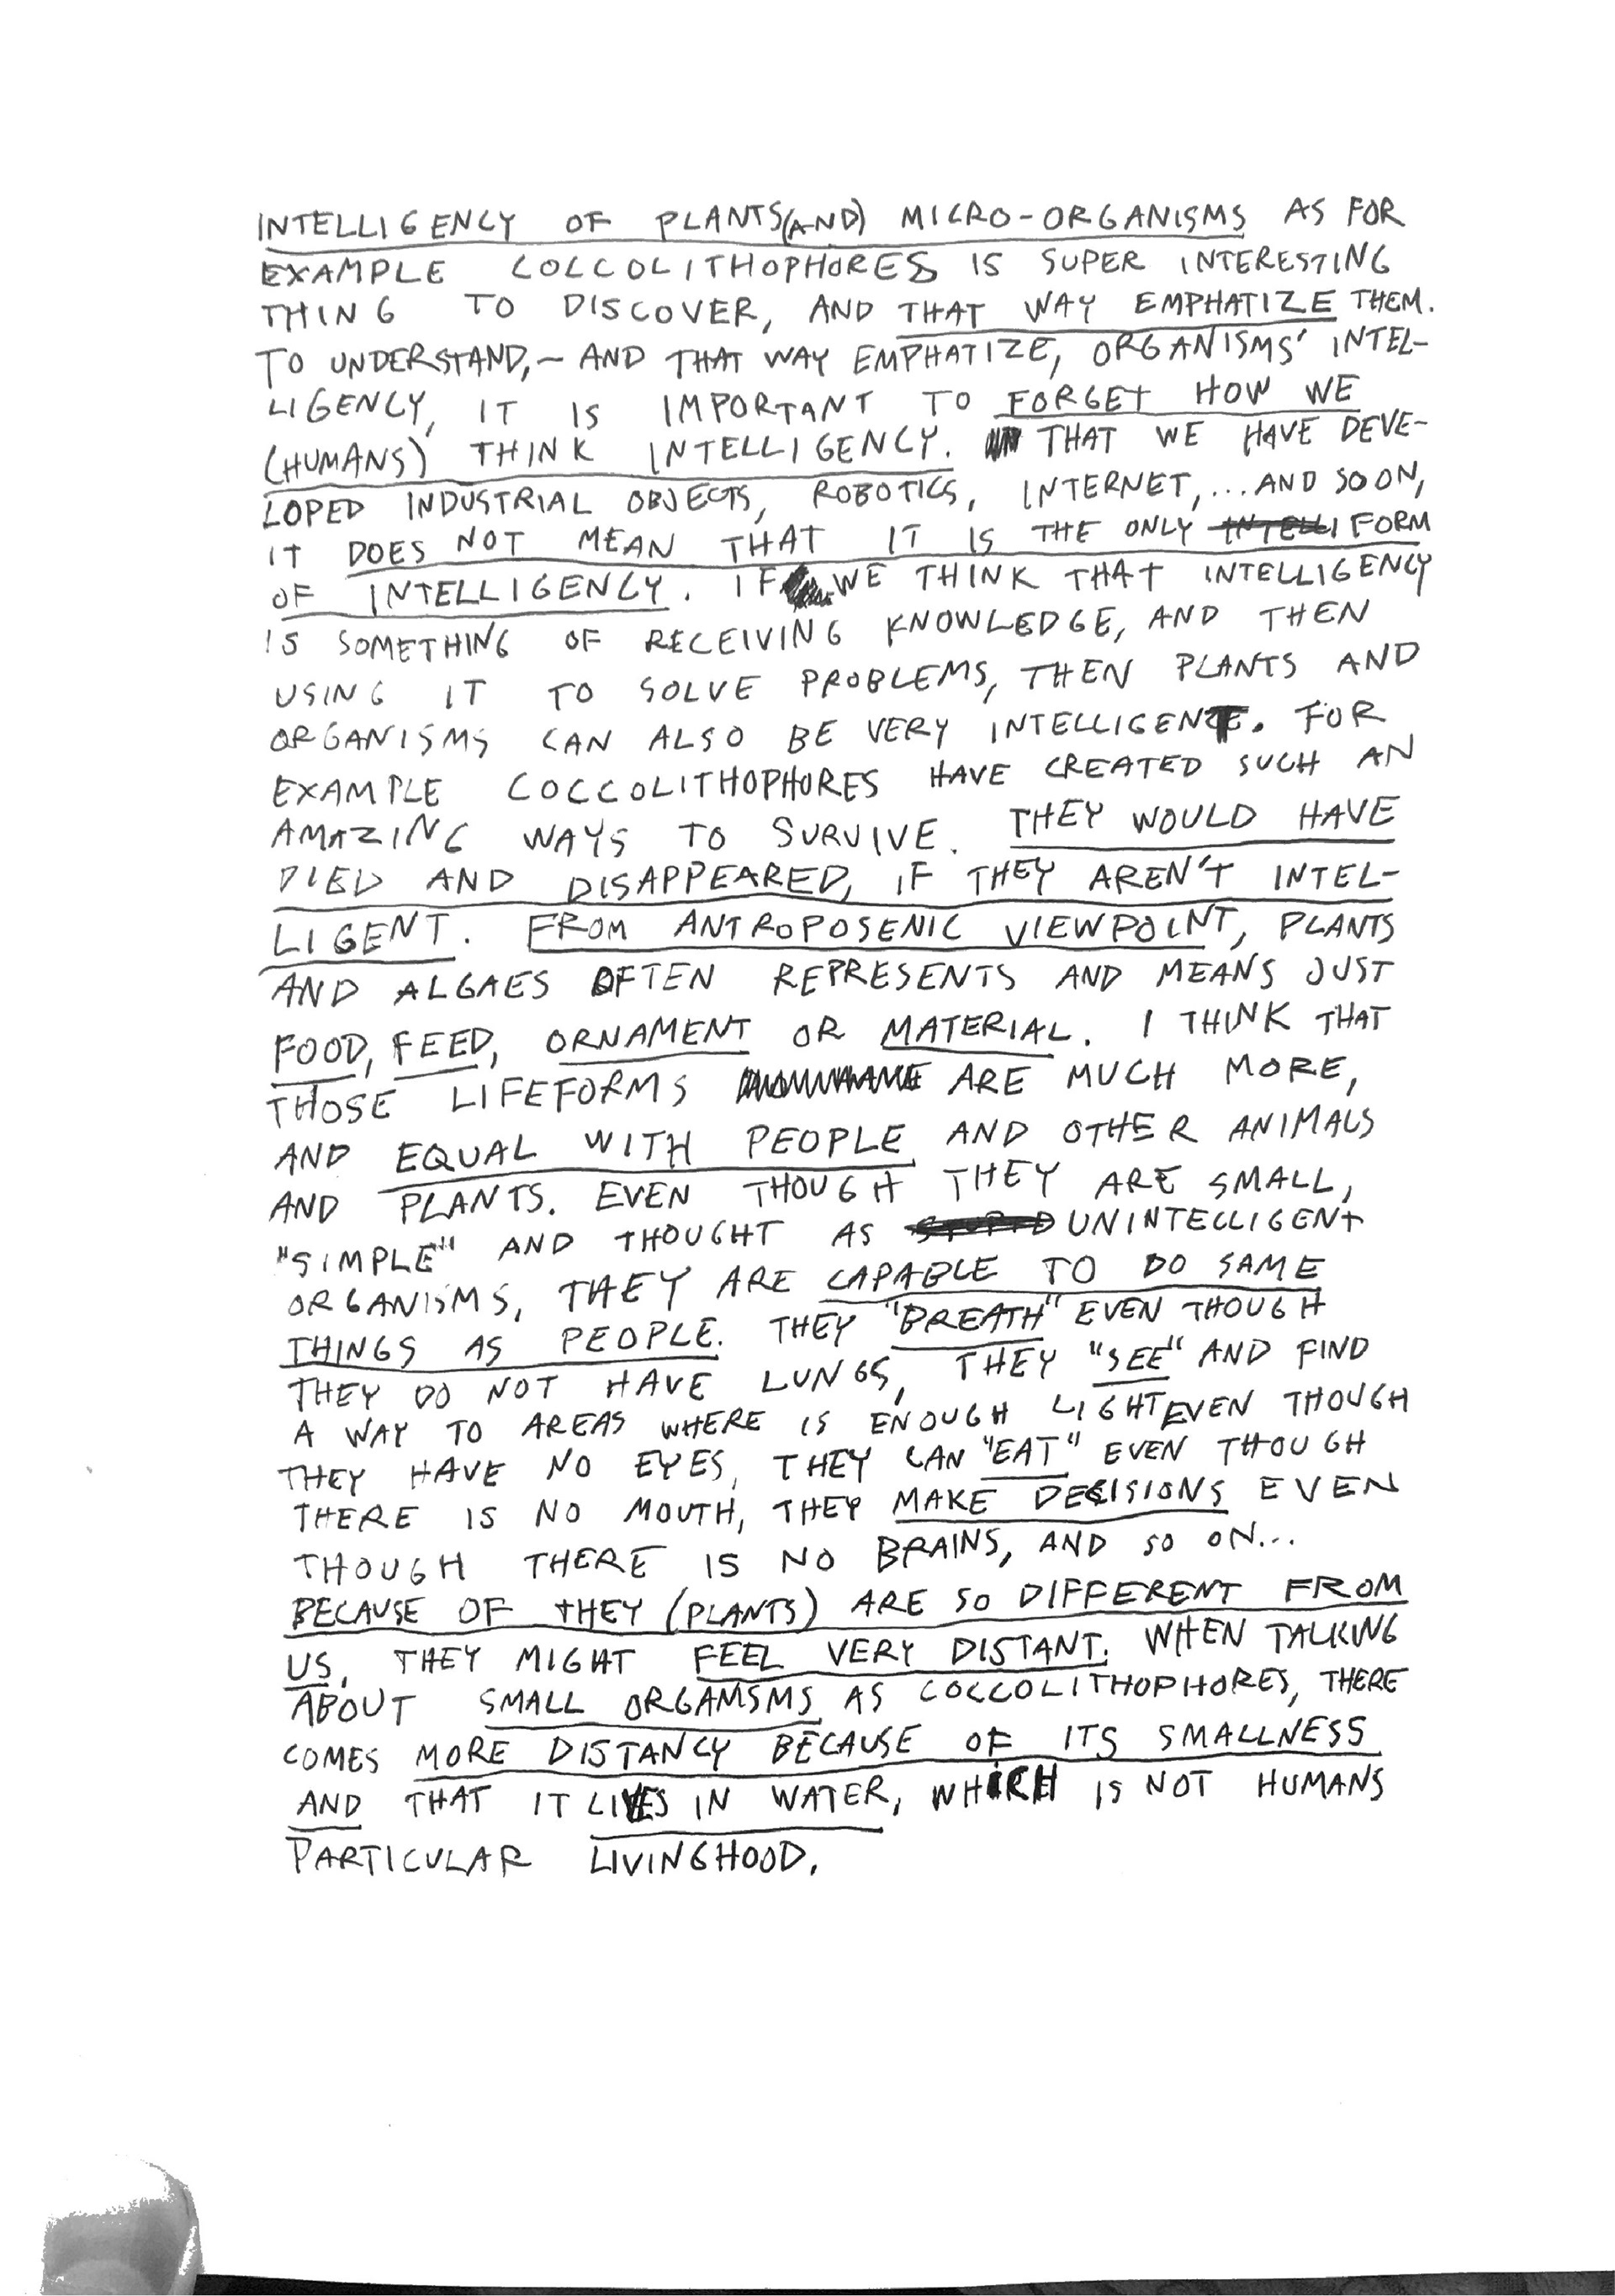 INTELLIGENCY OF PLANTS(AND) MICRO-ORGANISMS AS FOR
EXAMPLE COCCOLITHOPHORES IS SUPER INTERESTING
THING TO DISCOVER, AND THAT WAY EMPHATIZE THEM.
TO UNDERSTAND,- AND THAT WAY EMPHATIZE, ORGANISMS' INTEL-
LIGENCY, IT IS IMPORTANT TO FORGET HOW WE
(HUMANS) THINK INTELLIGENCY. THAT WE HAVE DEVE-
LOPED INDUSTRIAL OBJECTS, ROBOTICS, INTERNET,... AND SO ON,
IT DOES NOT MEAN THAT IT IS THE ONLY FORM
OF INTELLIGENCY. IF WE THINK THAT INTELLIGENCY
IS SOMETHING OF RECEIVING KNOWLEDGE, AND THEN
USING IT TO SOLVE PROBLEMS, THEN PLANTS AND
ORGANISMS CAN ALSO BE VERY INTELLIGENT. FOR
EXAMPLE COCCOLITHOPHORES HAVE CREATED SUCH AN
AMAZING WAYS TO SURVIVE. THEY WOULD HAVE
DIED AND DISAPPEARED, IF THEY AREN'T INTEL-
LIGENT. FROM ANTROPOSENIC VIEWPOINT, PLANTS
AND ALGAES OFTEN REPRESENTS AND MEANS JUST
FOOD, FEED, ORNAMENT OR MATERIAL. I THINK THAT
THOSE LIFEFORMS ARE MUCH MORE,
AND EQUAL WITH PEOPLE AND OTHER ANIMALS
AND PLANTS. EVEN THOUGH THEY ARE SMALL,
"SIMPLE" AND THOUGHT AS UNINTELLIGENT
ORGANISMS, THEY ARE CAPABLE TO DO SAME
THINGS AS PEOPLE. THEY "BREATH" EVEN THOUGH
THEY DO NOT HAVE LUNGS, THEY "SEE" AND FIND
A WAY TO AREAS WHERE IS ENOUGH LIGHT EVEN THOUGH
THEY HAVE NO EYES, THEY CAN "EAT" EVEN THOUGH
THERE IS NO MOUTH, THEY MAKE DECISIONS EVEN
THOUGH THERE IS NO BRAINS, AND SO ON...
BECAUSE OF THEY (PLANTS) ARE SO DIFFERENT FROM
US, THEY MIGHT FEEL VERY DISTANT. WHEN TALKING
ABOUT SMALL ORGANISMS AS COCCOLITHOPHORES, THERE
COMES MORE DISTANCY BECAUSE OF ITS SMALLNESS
AND THAT IT LIVES IN WATER, WHICH IS NOT HUMANS
PARTICULAR LIVINGHOOD.